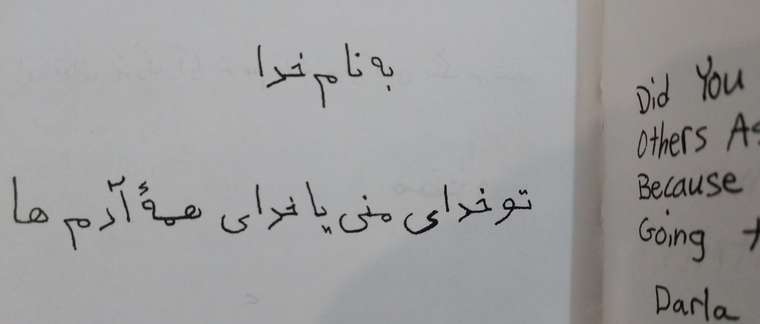 به نام خدا
تو خدای منی یا خدای همهٔ آدم ها
Did You
Others As
Because
Going
Darla